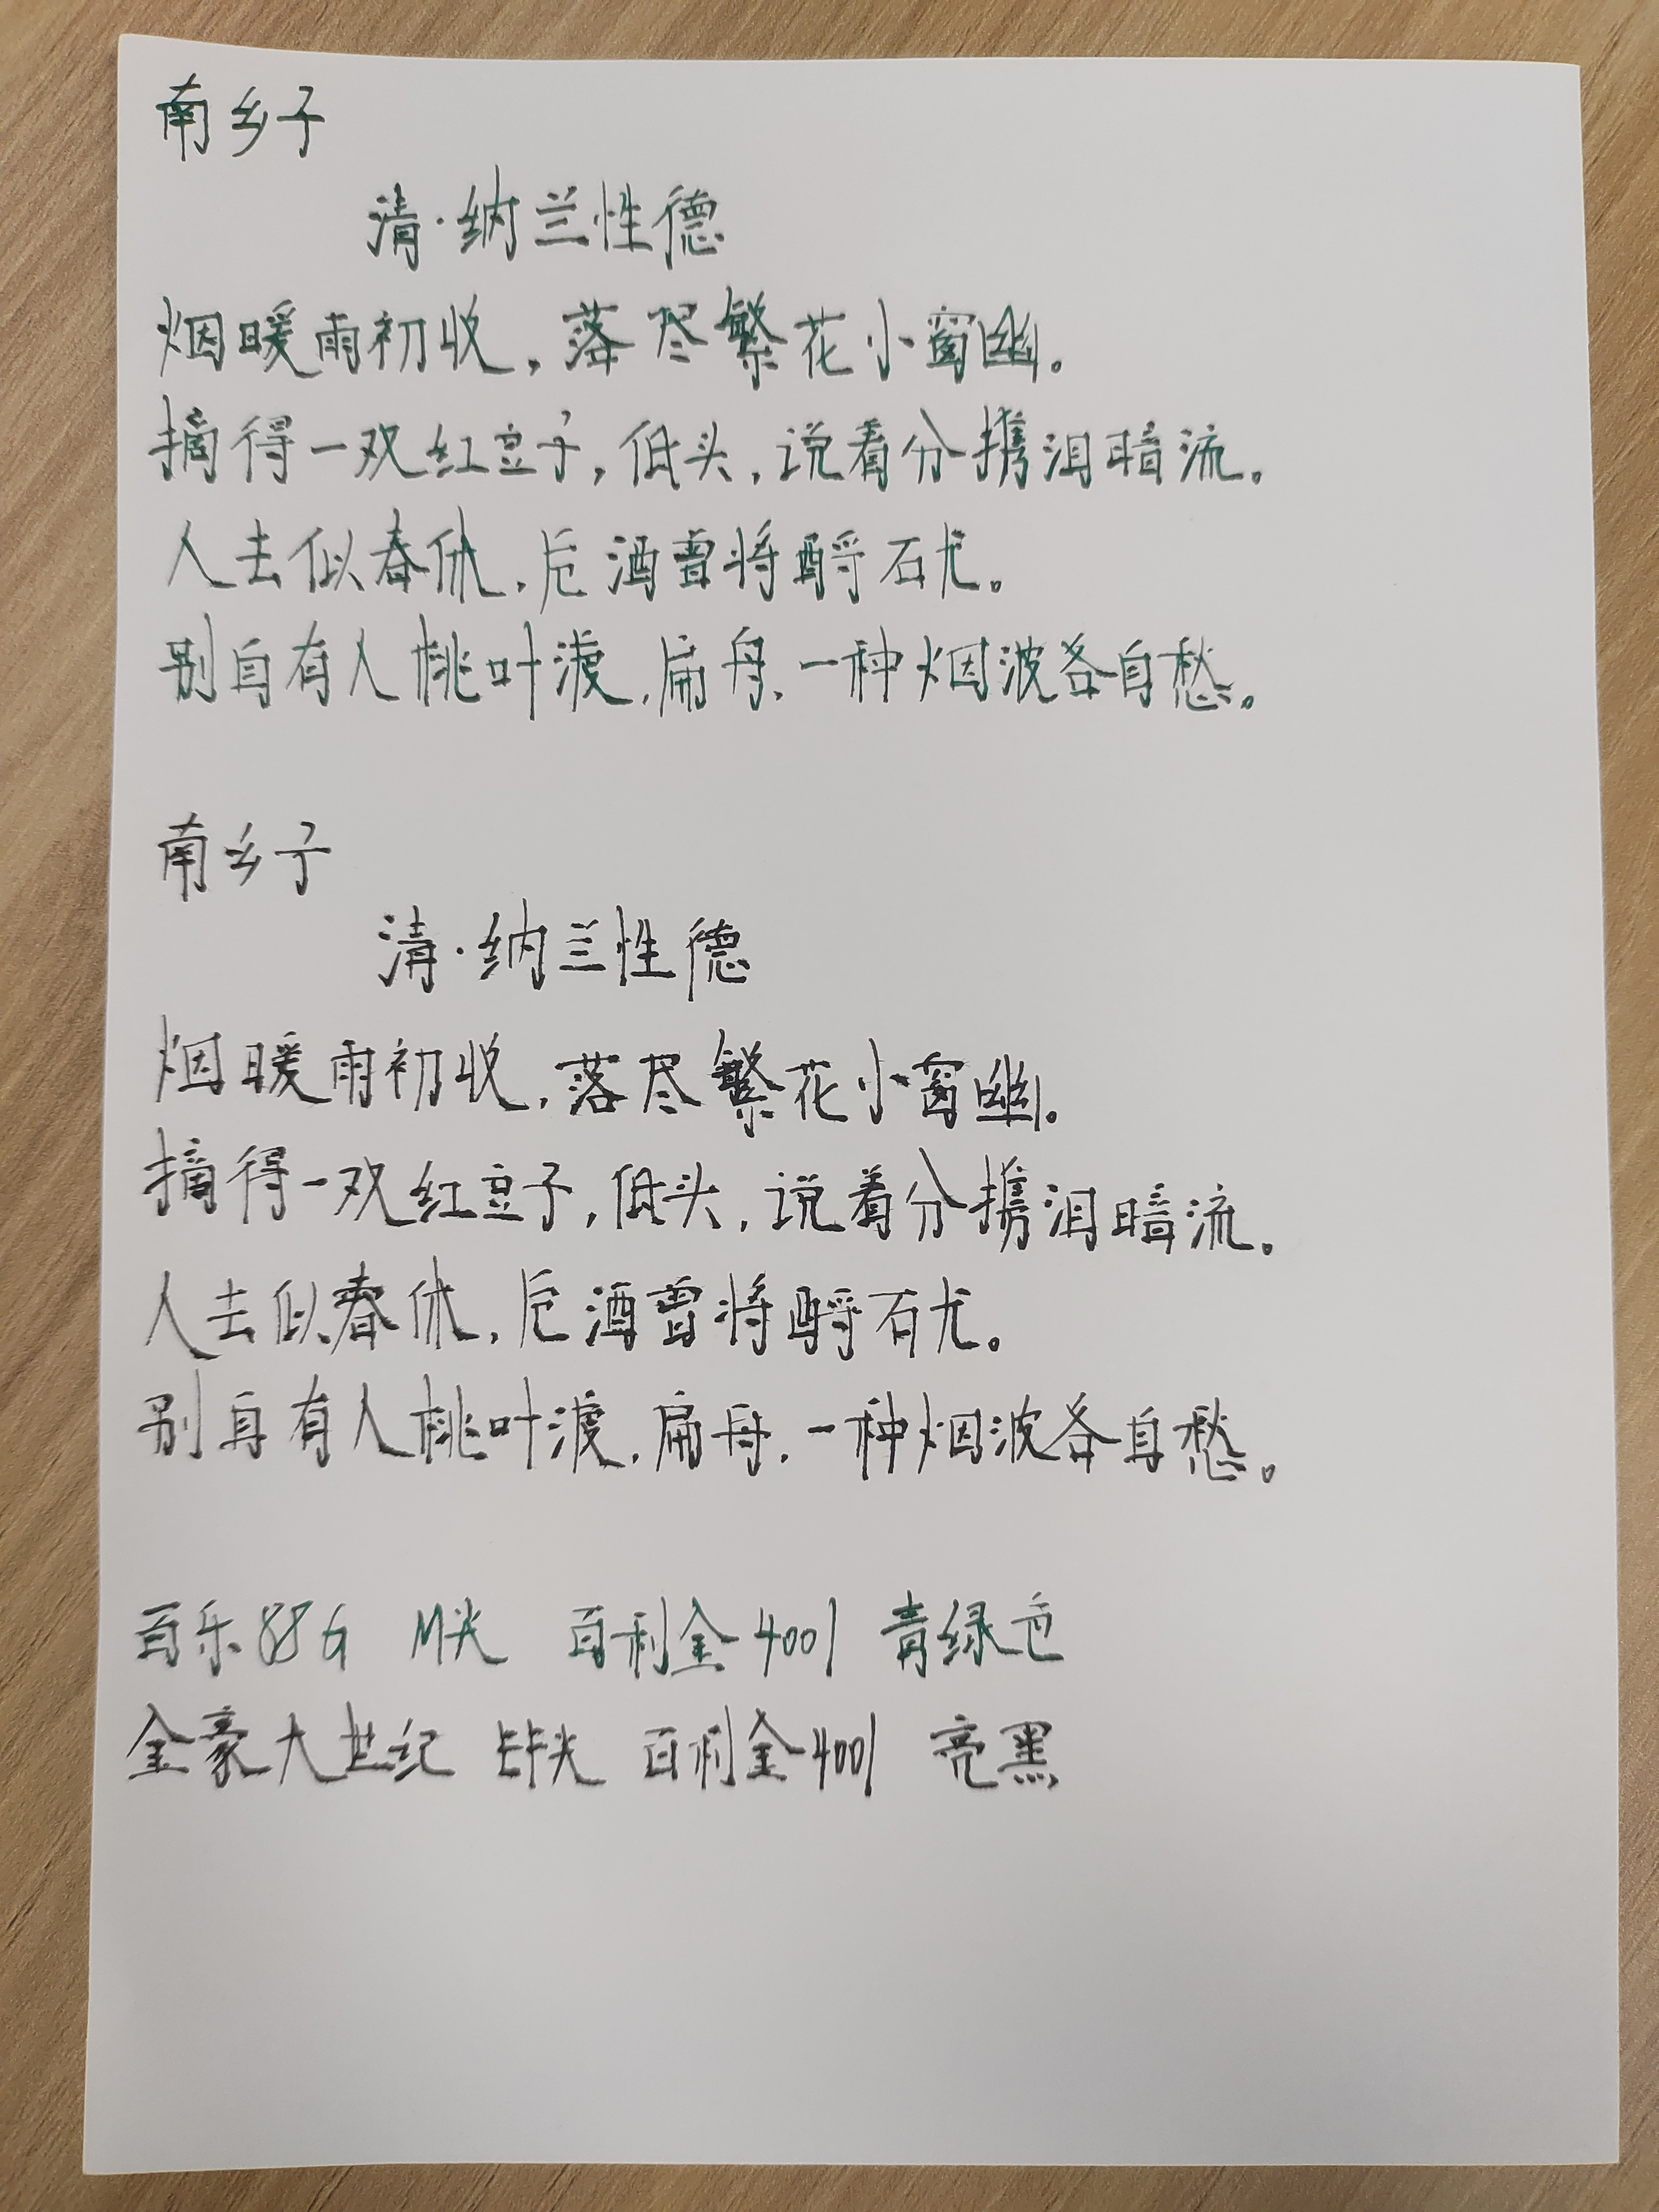 南乡子
清·纳兰性德
烟暖雨初收，落尽繁花小窗幽。
摘得一双红豆子，低头，说着分携泪暗流。
人去似春休，卮酒曾将酹石尤。
别自有人桃叶渡，扁舟，一种烟波各自愁。
南乡子
清·纳兰性德
烟暖雨初收，落尽繁花小窗幽。
摘得一双红豆子，低头，说着分携泪暗流。
人去似春休，卮酒曾将酹石尤。
别自有人桃叶渡，扁舟，一种烟波各自愁。
百乐88G M尖 百利金4001 青绿色
金豪大世纪 长尖 百利金4001 亮黑